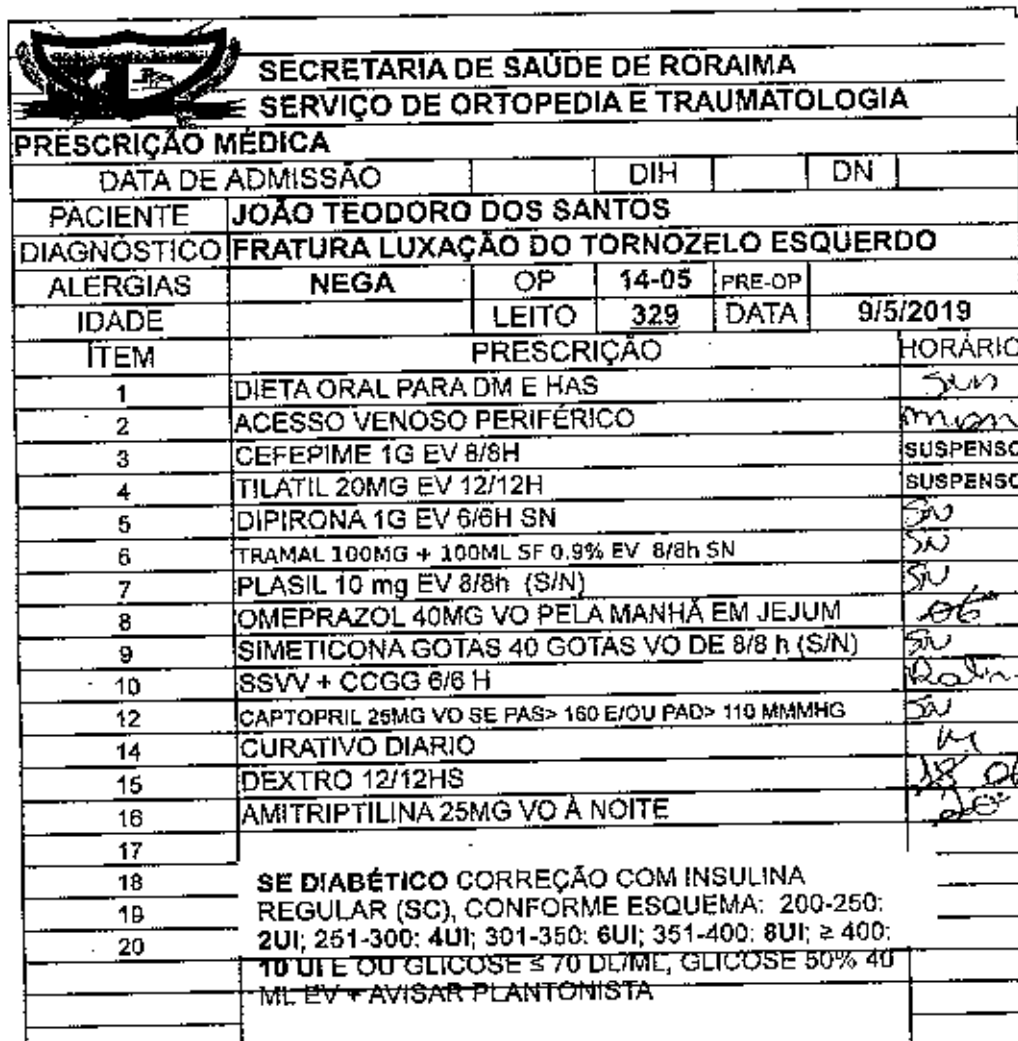 SECRETARIA DE SAÚDE DE RORAIMA
SERVIÇO DE ORTOPEDIA E TRAUMATOLOGIA
PRESCRIÇÃO MÉDICA
DATA DE ADMISSÃO DIH DN
PACIENTE JOÃO TEODORO DOS SANTOS
DIAGNÓSTICO FRATURA LUXAÇÃO DO TORNOZELO ESQUERDO
ALERGIAS NEGA OP 14-05 PRE-OP
IDADE LEITO 329 DATA 9/5/2019
ÍTEM PRESCRIÇÃO HORÁRIO
1 DIETA ORAL PARA DM E HAS
2 ACESSO VENOSO PERIFÉRICO
3 CEFEPIME 1G EV 8/8H SUSPENSO
4 TILATIL 20MG EV 12/12H SUSPENSO
5 DIPIRONA 1G EV 6/6H SN SN
6 TRAMAL 100MG + 100ML SF 0.9% EV 8/8h SN SN
7 PLASIL 10 mg EV 8/8h (S/N) SN
8 OMEPRAZOL 40MG VO PELA MANHÃ EM JEJUM 06
9 SIMETICONA GOTAS 40 GOTAS VO DE 8/8 h (S/N) SN
10 SSVV + CCGG 6/6 H
12 CAPTOPRIL 25MG VO SE PAS> 160 E/OU PAD> 110 MMMHG SN
14 CURATIVO DIARIO
15 DEXTRO 12/12HS 18 06
16 AMITRIPTILINA 25MG VO À NOITE 20
17
18 SE DIABÉTICO CORREÇÃO COM INSULINA
19 REGULAR (SC), CONFORME ESQUEMA: 200-250:
20 2UI; 251-300: 4UI; 301-350: 6UI; 351-400: 8UI; ≥ 400:
10 UI E OU GLICOSE ≤ 70 DL/ML, GLICOSE 50% 40
ML EV + AVISAR PLANTONISTA